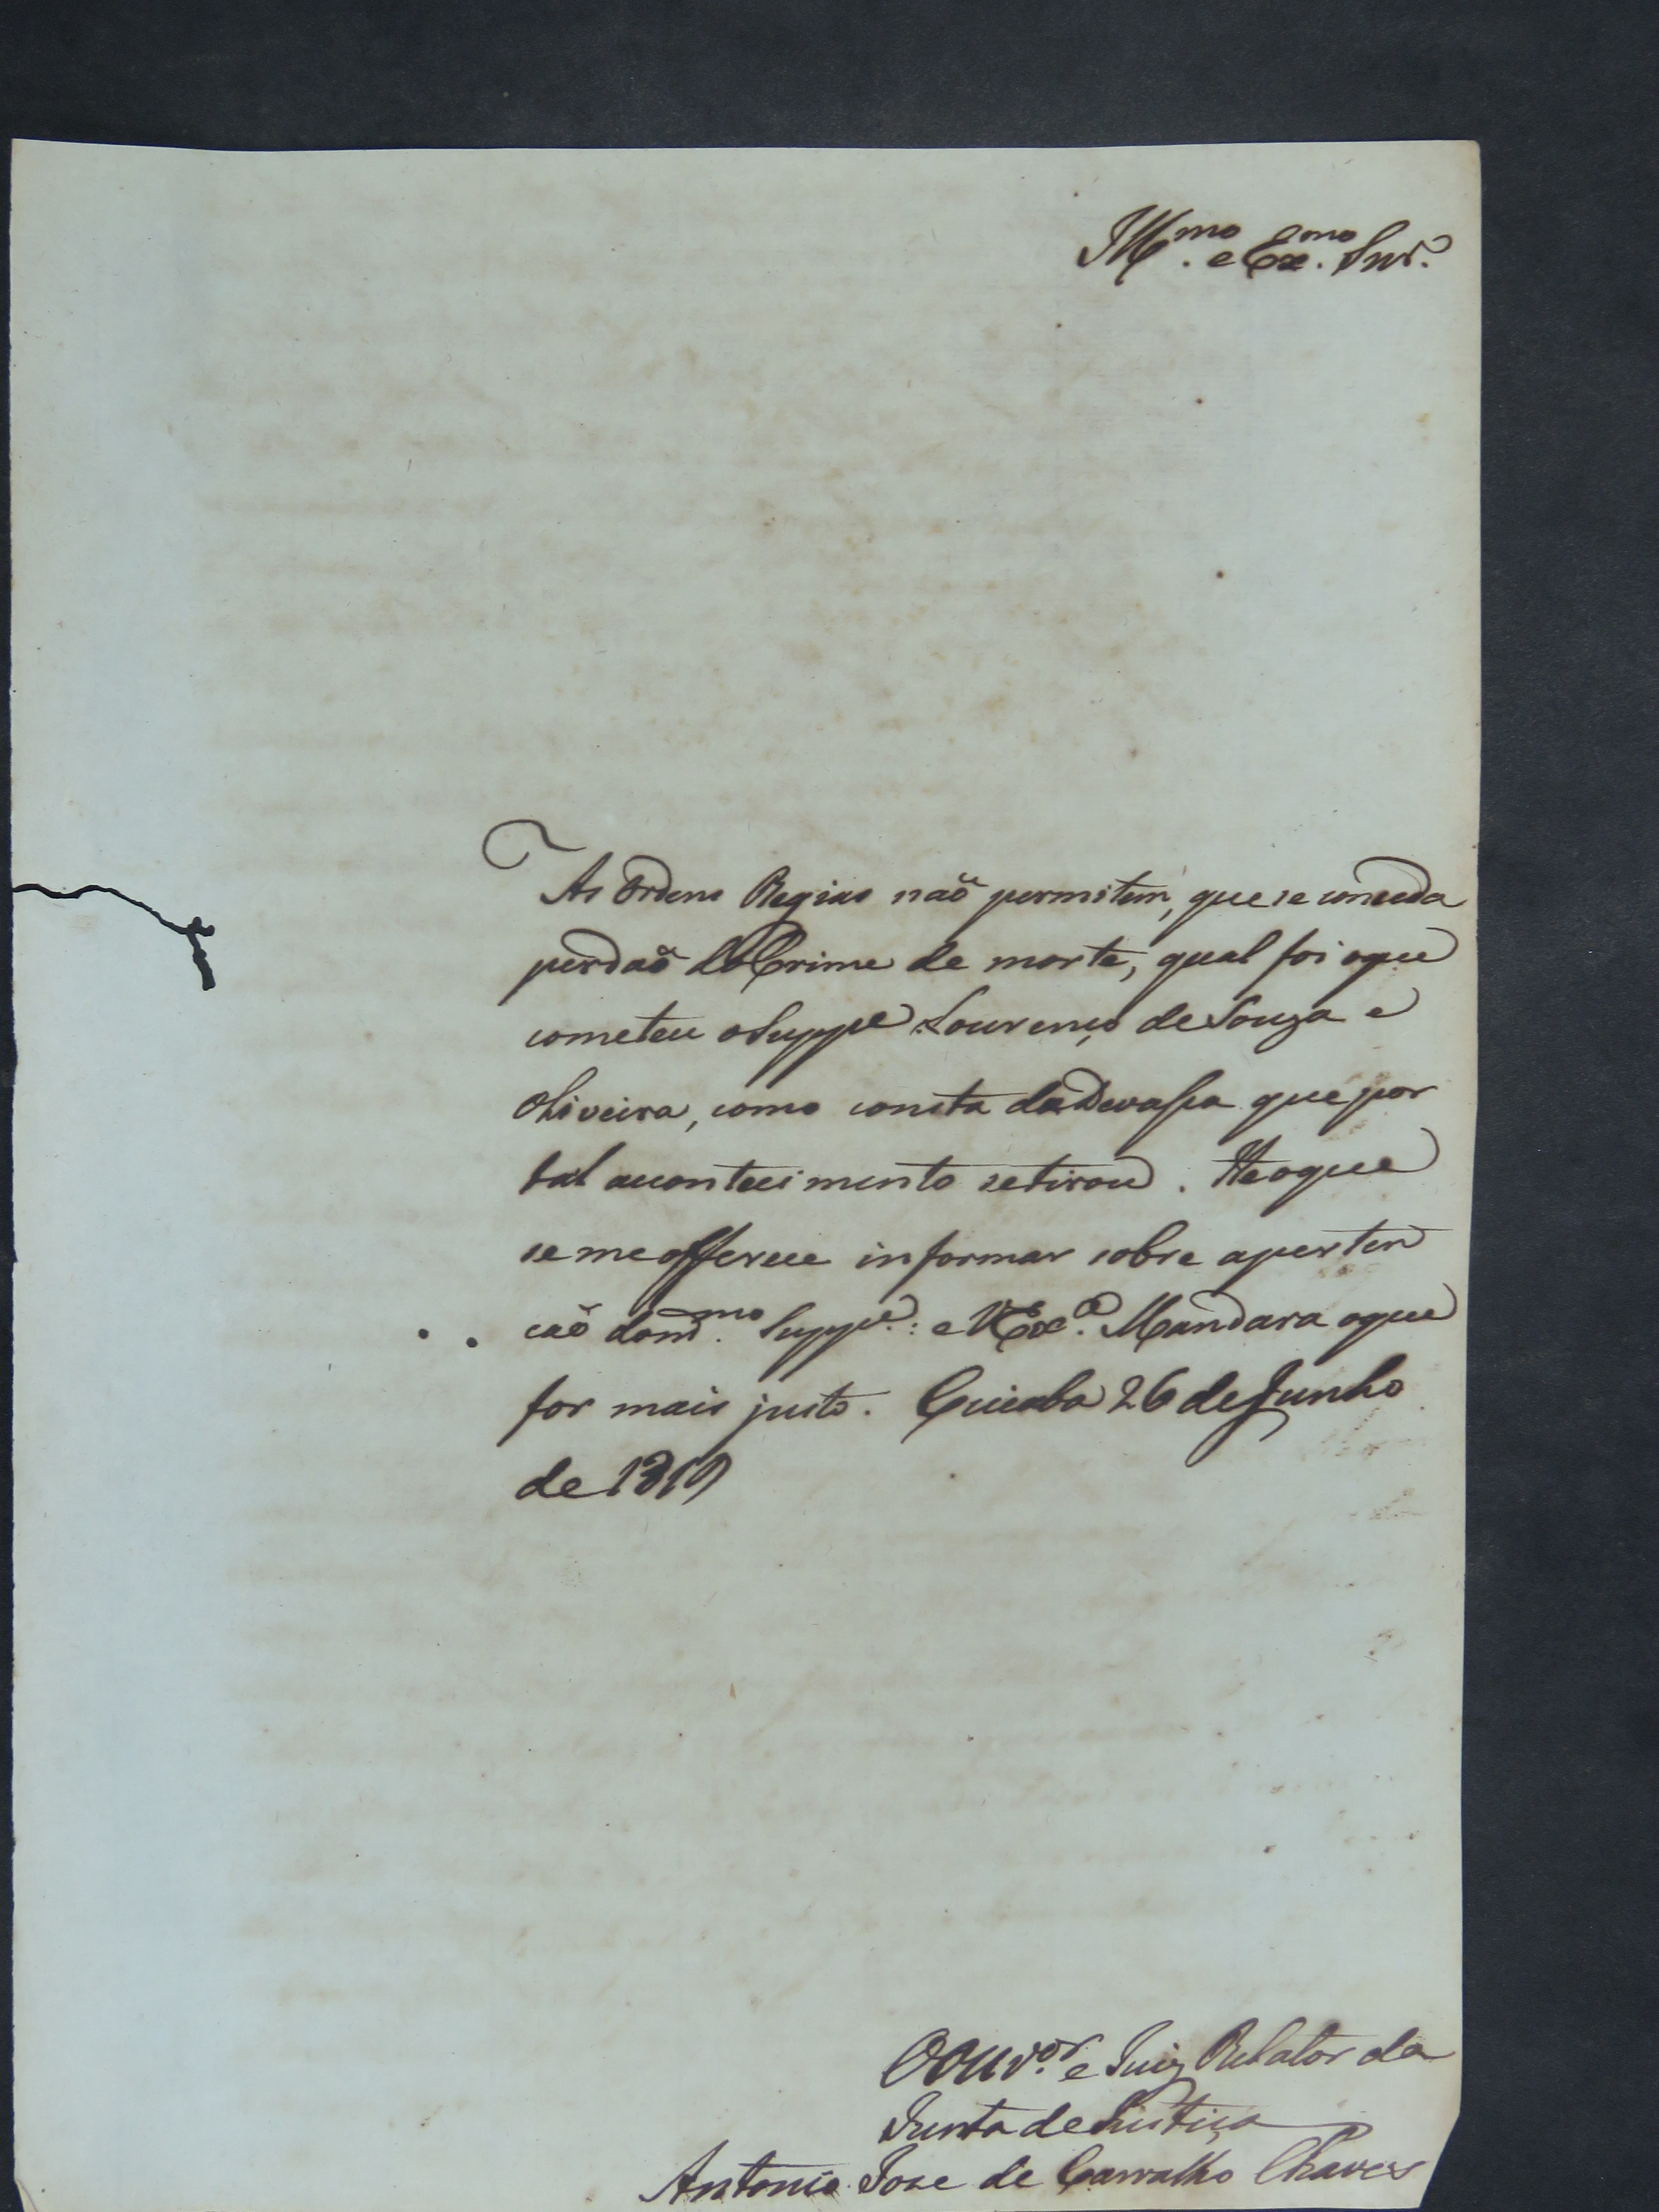 Ill.mo e Ex.mo Snr.
As Ordens Regias naõ permitem, que se conceda
perdaõ do Crime de morte, qual foi oque
cometeu oSuppe Lourenço de Souza e
Oliveira, como consta da Devassa que por
tal acontecimento setirou. He oque
se me offerece informar sobre aperten
caõ dom.mo Suppe.: e V Ex.a Mandara oque
for mais justo. Cuiaba 26 de Junho
de 1819
O Ouv.or e Juiz Relator da
Junta de Justiça
Antonio Jose de Carvalho Chaves